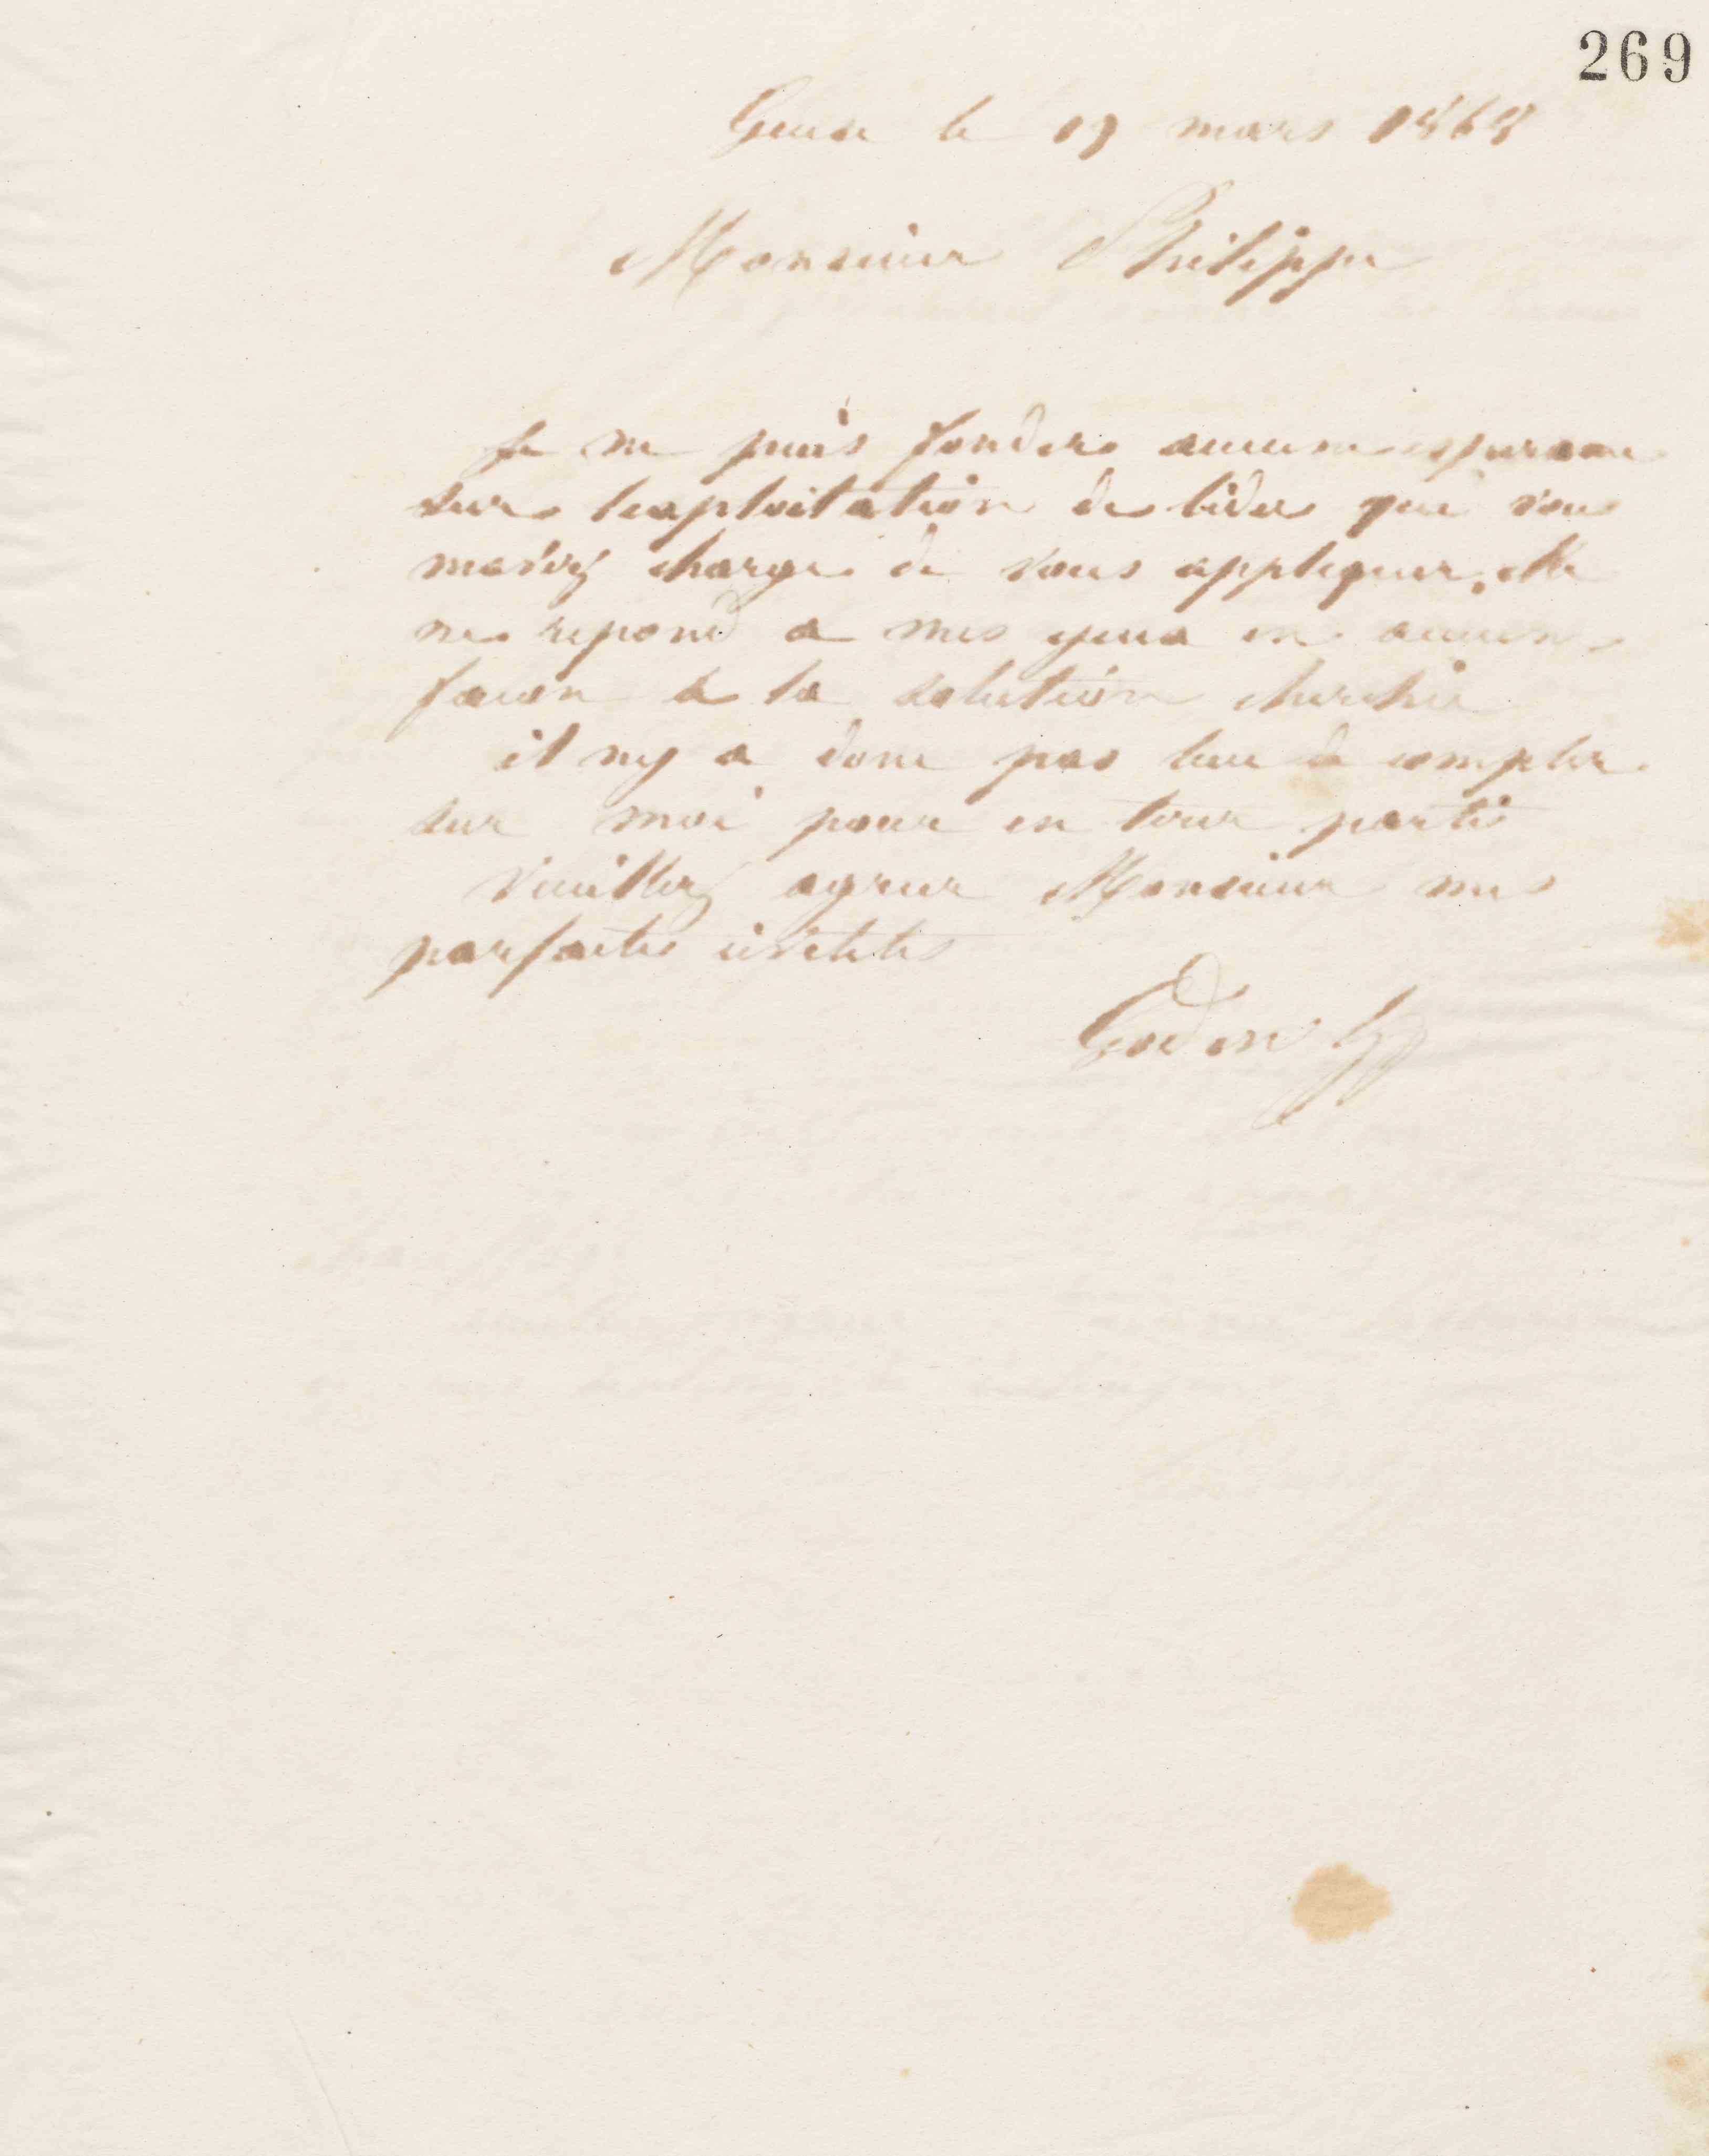 269
Guise le 19 mars 1868
Monsieur Philippe
Je ne puis fonder aucune esperance
sur lexploitation de lidee que vous
mavez charge de vous appliquer. Elle
ne repond a mes yeux en aucune
facon à la solution cherchée
il ny a donc pas lieu à compter
sur moi pour en tirer parti
Veuillez agreer Monsieur mes
parfaites civilités
Godin